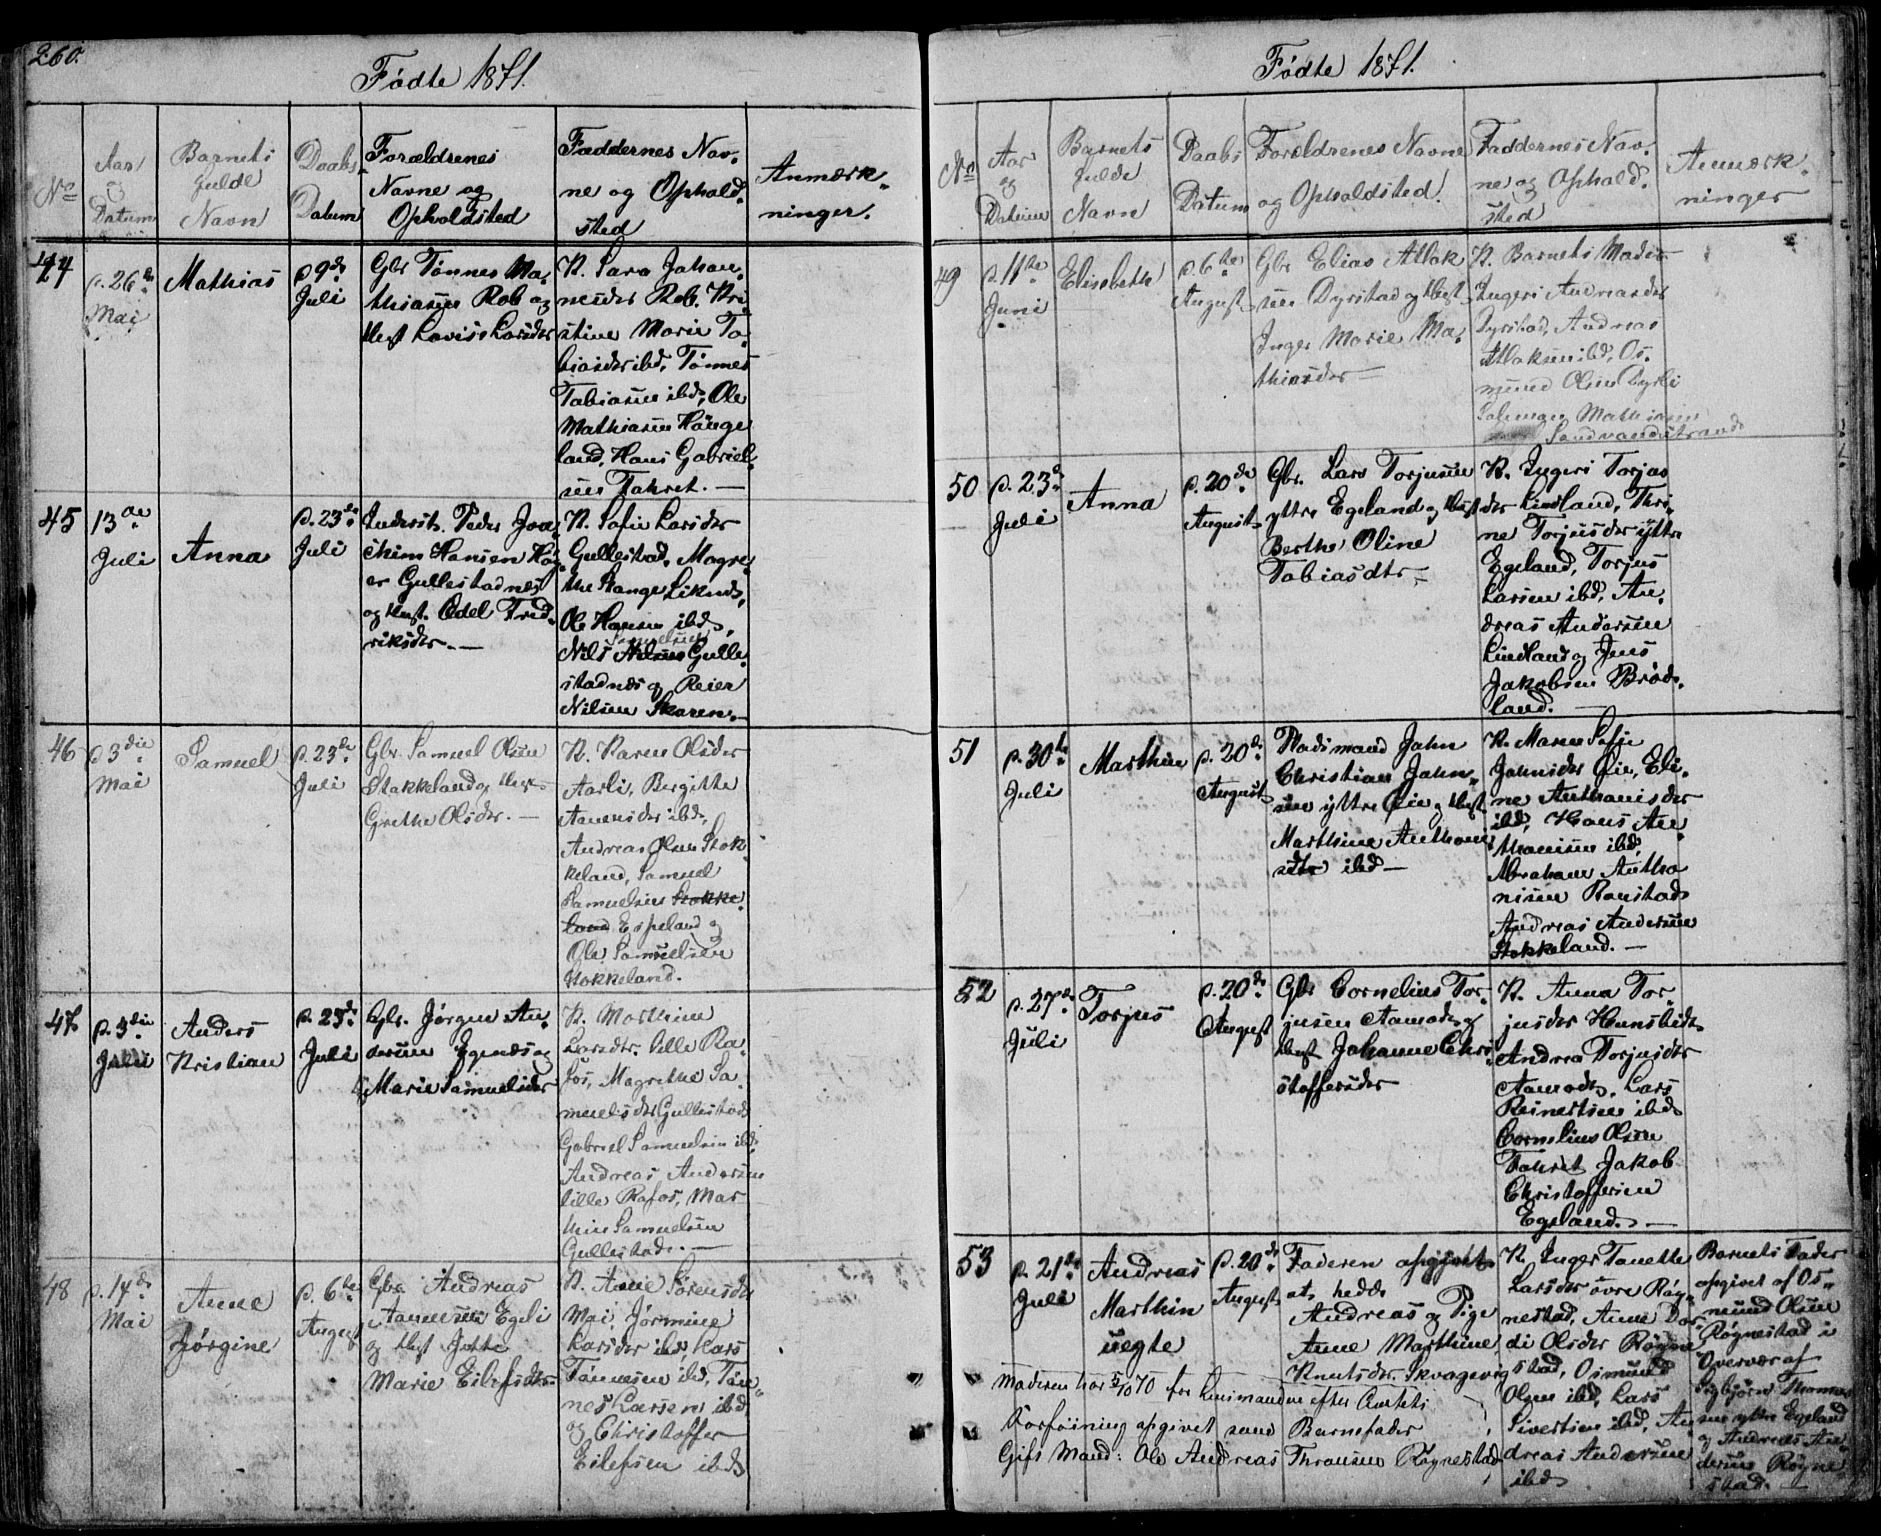 260.
Födte 1871.
No
Aar
og
Datum
Barnets
fulde
Navn
Daabs
Datum
Forældrenes
Navne og
Opholdsted
Faddernes Nav-
ne og Ophold-
sted
Anmærk-
ninger.
44
d. 26de
Mai
Mathias
d 9de
Juli
Gbr Tønnes Ma-
thiasen Rob og
Hust Lovise Larsdtr
K. Sara Johan-
nesdtr Rob. Kri-
stine Marie To-
biasdtr ibd, Tønnes
Tobiasen ibd, Ole
Mathiasen Hauge-
land, Hans Gabriel-
sen Tahret. —
45
13de
Juli
Anna
d. 23de
Juli
Inderst. Peder Joa-
chim Hansen Høj-
er Gullestadnes
og Hust. Edel Fred-
riksdtr. —
K. Sofie Larsdtr
Gullestad, Magre-
the Stange Liknds,
Ole Hansen ibd,
Samuelsen
Nils Nilsen Gulle-
stadnes og Reier
Nilsen Skaren. —
46
d 3die
Mai
Samuel
d. 23de
Juli
Gbr. Samuel Olsen
Stakkeland og Hust
Grethe Olsdtr. —
K. Karen Olsdtr
Aarli, Bergitte
Aanensdtr ibd,
Andreas Olsen Stok-
keland, Samuel
Samuelsen Stokke-
land Espeland og
Ole Samuelsen
Stokkeland.
47
d. 3die
Juli
Anders
Kristian
d. 23de
Juli
Gbr. Jørgen An-
dersen Egenæs og
H. Marie Samuelsdtr
K. Marthine
Larsdtr. lille Ra-
fos, Magrethe Sa-
muelsdtr Gullestad
Gabriel Samuelsen ibd
Andreas Andersen
lille Rafos, Mar-
thin Samuelsen
Gullestad. —
48
d. 14de
Mai
Anne
Jørgine
d. 6te
August
Gbr. Andreas
Aanensen Egeli
og Hust Jette
Marie Eilefsdtr.
K. Anne Sørensdtr
Mai, Jørmine
Larsdtr ibd Lars
Tønnesen ibd, Tøn-
nes Larsen ibd
og Christoffer
Eilefsen ibd
Födte 1871.
No
Aar
og
Datum
Barnets
fulde
Navn
Daabs
Datum
Forældrenes Navne
og Opholdsted.
Faddernes Nav-
ne og Ophold-
sted
Anmærk-
ninger
49
d. 11te
Juni
Elisabeth
d. 6te
August
Gbr Elias Atlak
sen Dyrstad og Hust
Inger Marie Ma-
thiasdtr —
K. Barnets Moder
Ingeri Andreasdtr
Dyrstad, Andreas
Atlaksen ibd, Os-
mund Olsen Dyrli
Salomon Mathiasen
Sandvandstrand
50
d. 23de
Juli
Anna
d. 20de
August
Gbr. Lars Torjusen
ytre Egeland og Hust
Berthe Oline
Tobiasdtr —
K. Ingeri Torjus
dtr Lindland, Thri-
ne Torjusdtr ytre
Egeland, Torjus
Larsen ibd, An-
dreas Andersen
Lindland og Jens
Jakobsen Brød-
land.
51
d. 30te
Juli
Marthin
d. 20de
August
Pladsmand Jahn
Christian Jahn-
sen ytre Øie og Hust
Marthine Anthoni
sdtr ibd —
K. Maren Sofie
Jahnsdtr Øie, Eli-
ne Anthonisdtr
ibd, Hans An-
thonisen ibd,
Abraham Antho
nisen Ranstad
Andreas Andersen
Stokkeland. —
52
d. 27de
Juli
Torjus
d. 20de
August
Gbr Cornelius Tor-
jusen Aamodt og
Hust Johanne Chri-
stoffersdtr
K. Anna Tor-
jusdtr Hunsbedt
Andrea Torjusdtr
Aamodt, Lars
Reinertsen ibd
Cornelius Olsen
Tahret Jakob
Christoffersen
Egeland. —
53
d. 21de
Juli
Andreas
Marthin
uegte
d. 20de
August
Faderen opgivet
at hedde
Andreas og Pige
Anne Marthine
Knutsdtr. Skvagevig
Moderen har 5/10 70 for Lensmanden efter Amtets
Forføining opgivet som Barnefader
Gift Mand: Ole Andreas Thronsen Røgnestad
K. Inger Tanette
Larsdtr øvre Røg-
nestad, Anne Dor-
di Olsdtr Røgne
stad, Osmund
Olsen ibd, Lars
Sivertsen ibd, An-
dreas Andersen
ibd
Barnets Fader
opgivet af Os-
mund Olsen
Røgnestad i
Overvær af
Sigbjørn Thomas
sen ytre Egeland
og Andreas An-
dersen Røgne
stad. —